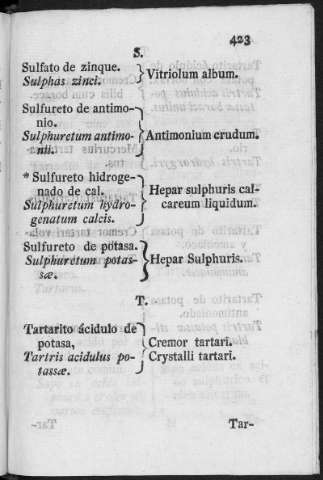 423
S.
Sulfato de zinque.
Sulphas zinci.
Vitriolum album.
Sulfureto de antimo-
nio.
Sulphuretum antimo-
nii.
Antimonium crudum.
* Sulfureto hidroge-
nado de cal.
Sulphuretum hydro-
genatum calcis.
Hepar sulphuris cal-
careum liquidum.
Sulfureto de potasa.
Sulphuretum potas-
sæ.
Hepar Sulphuris.
T.
Tartarito ácidulo de
potasa,
Tartris acidulus po-
tassæ.
Cremor tartari.
Crystalli tartari.
Tar-